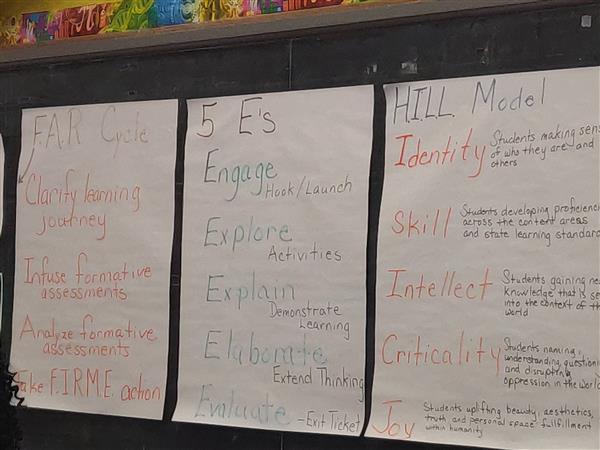 F.A.R Cycle
Clarify learning
journey
Infuse formative
assessments
Analyze formative
assessments
F.I.R.M.E. action
5 E's
Engage
Hook/Launch
Explore
Activities
Explain
Demonstrate
Learning
Elaborate
Extend Thinking
Evaluate
-Exit Ticket
H.I.L.L. Model
Identity
Students making
of who they are and
others
Skill
Students developing
across the content areas
and state learning
Intellect
Students gaining
knowledge that is
into the context of
world
Criticality
Students naming,
understanding,
and disrupting
oppression in the
Joy
Students uplifting beauty, aesthetics,
truth and personal space fullfillment
within humanity